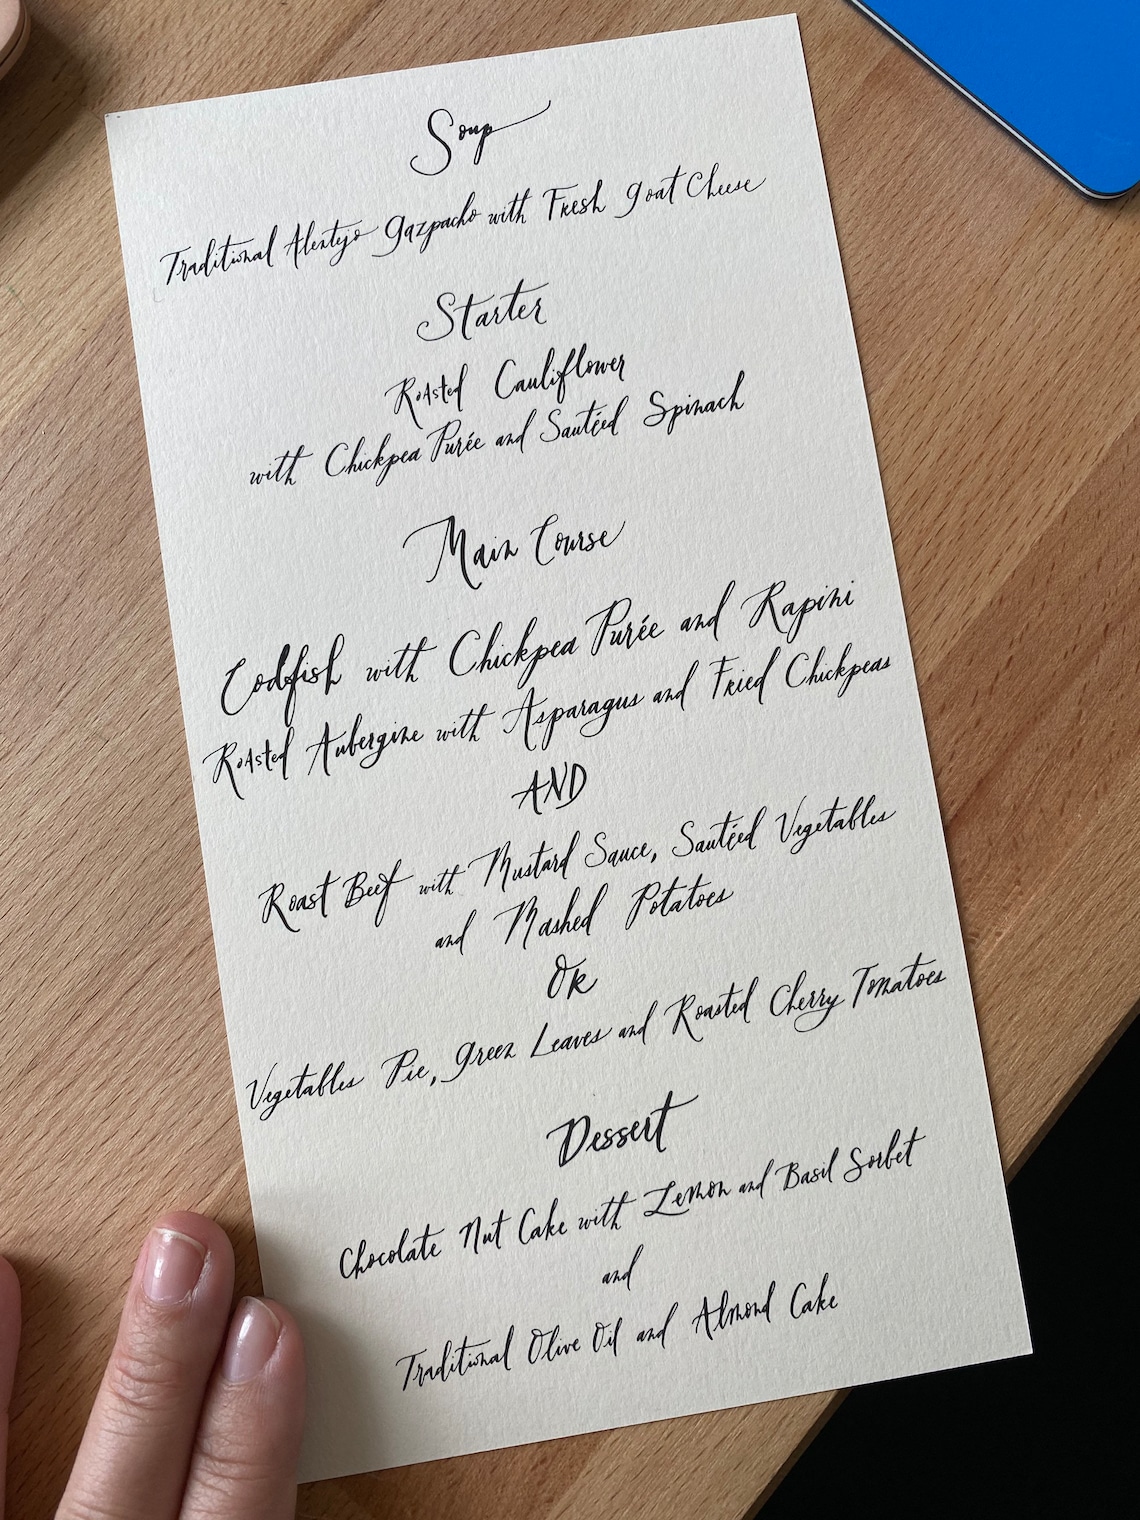 Soup
Traditional Alentejo Gazpacho with Fresh Goat Cheese
Starter
Roasted Cauliflower
with Chickpea Purée and Sautéed Spinach
Main Course
Codfish with Chickpea Purée and Rapini
Roasted Aubergine with Asparagus and Fried Chickpeas
AND
Roast Beef with Mustard Sauce, Sautéed Vegetables
and Mashed Potatoes
OR
Vegetables Pie, Green Leaves and Roasted Cherry Tomatoes
Dessert
Chocolate Nut Cake with Lemon and Basil Sorbet
and
Traditional Olive Oil and Almond Cake